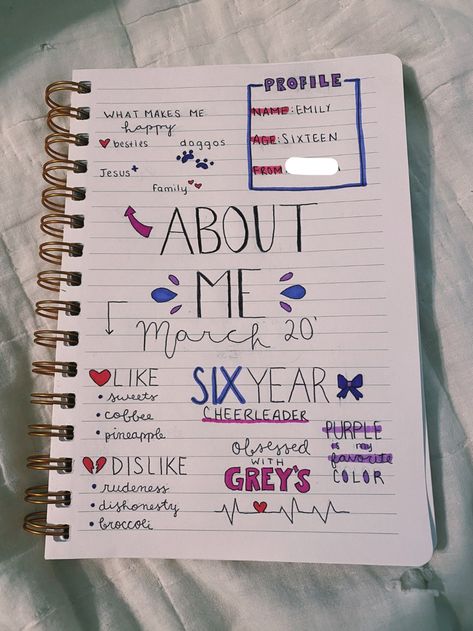 PROFILE
NAME: EMILY
AGE: SIXTEEN
FROM
WHAT MAKES ME
happy
besties
doggos
Jesus
Family
ABOUT
ME
March 20'
LIKE
• sweets
• coffee
• pineapple
DISLIKE
• rudeness
• dishonesty
• broccoli
SIX YEAR
CHEERLEADER
obsessed
WITH
GREY'S
PURPLE
is my
favorite
COLOR